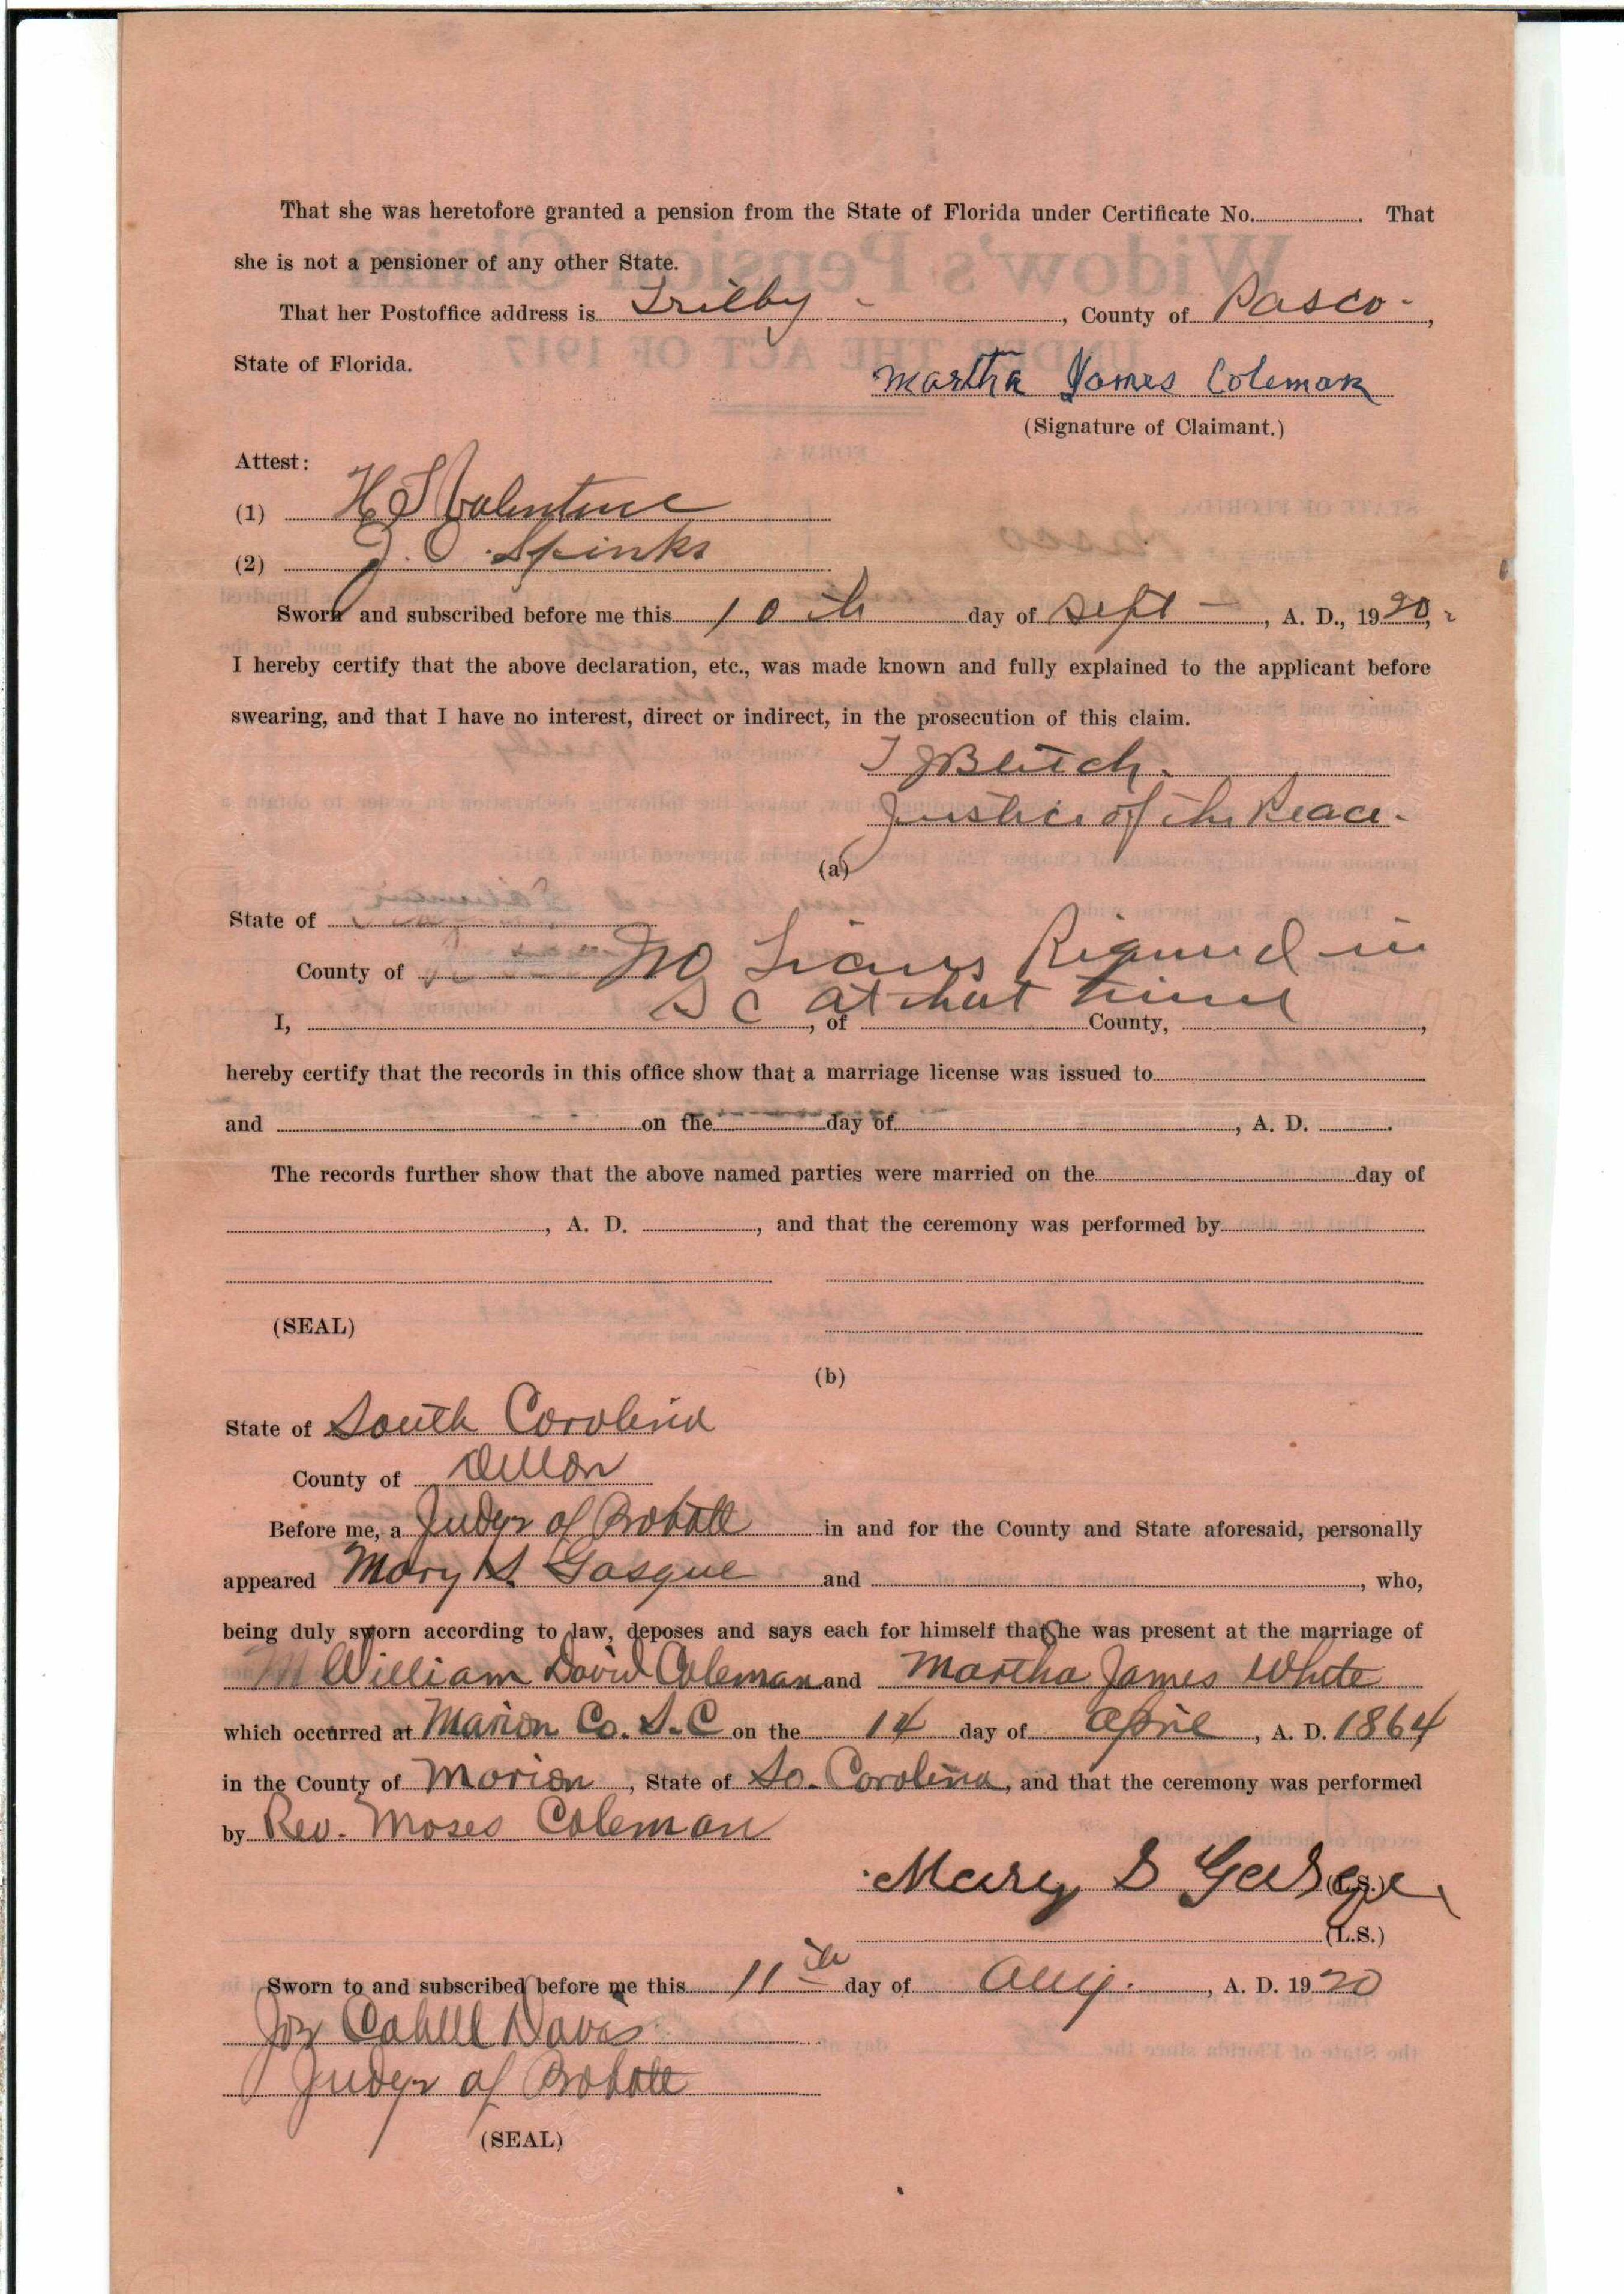 That she was heretofore granted a pension from the State of Florida under Certificate No. . That
she is not a pensioner of any other State.
That her Postoffice address is Trilby - , County of Pasco - ,
State of Florida.
Martha James Coleman
(Signature of Claimant.)
Attest:
(1) H S Valentine
(2) J. O. Spinks
Sworn and subscribed before me this 10th day of Sept - , A. D., 1920,
I hereby certify that the above declaration, etc., was made known and fully explained to the applicant before
swearing, and that I have no interest, direct or indirect, in the prosecution of this claim.
T J Blitch.
Justice of the Peace.
(a)
State of
County of No Required in
S C at that time
I, , of County, ,
hereby certify that the records in this office show that a marriage license was issued to
and on the day of , A. D. .
The records further show that the above named parties were married on the day of
, A. D. , and that the ceremony was performed by
(SEAL)
(b)
State of South Carolina
County of Dillon
Before me, a Judge of Probate in and for the County and State aforesaid, personally
appeared Mary S. Gasque and , who,
being duly sworn according to law, deposes and says each for himself that She was present at the marriage of
William David Coleman and Martha James White
which occurred at Marion Co. S.C on the 14 day of April , A. D. 1864
in the County of Marion , State of So. Carolina, and that the ceremony was performed
by Rev. Moses Coleman
Mary S Gasque (L.S.)
(L.S.)
Sworn to and subscribed before me this 11th day of Aug. , A. D. 1920
Joe Cabell Davis
Judge of Probate
(SEAL)